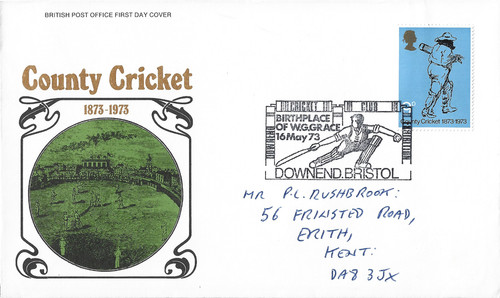 BRITISH POST OFFICE FIRST DAY COVER
County Cricket
1873-1973
County Cricket 1873-1973
CRICKET
CLUB
BIRTHPLACE
OF W.G.GRACE
16 May 73
DOWNEND.BRISTOL
MR P.L. RUSHBROOK:
56 FRINSTED ROAD,
ERITH,
KENT:
DA8 3JX